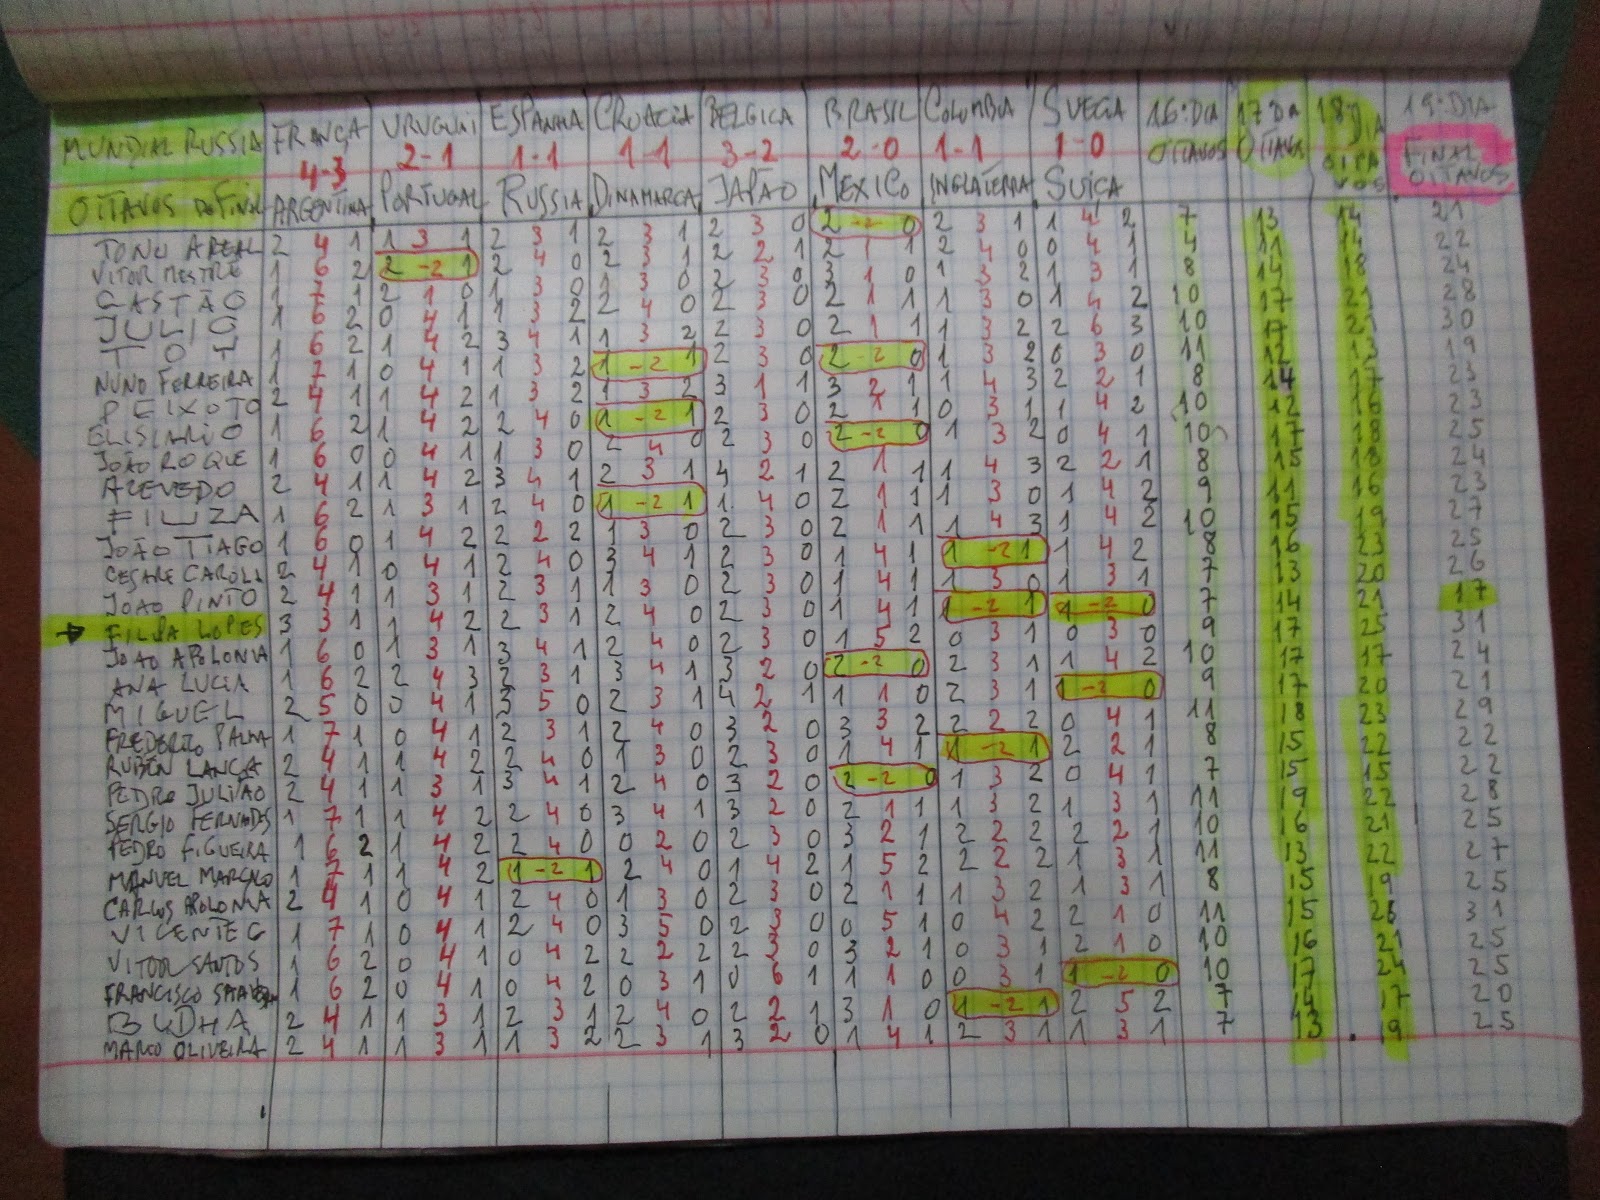 MUNDIAL RUSSIA FRANÇA URUGUAI ESPANHA CROACIA BELGICA BRASIL COLOMBIA SUEGIA 16º DIA 17 DIA 18º DIA 19º DIA
4-3 2-1 1-1 1-1 3-2 2-0 1-1 1-0 OITAVOS OITAVOS OITAVOS FINAL OITAVOS
OITAVOS DE FINAL ARGENTINA PORTUGAL RUSSIA DINAMARCA JAPÃO MEXICO INGLATERRA SUIÇA
TONO AREAL 2 4 1 1 3 1 2 3 1 2 3 1 2 3 0 2 -2 0 2 3 1 1 4 2 7 13 14 21
VITOR MESTRE 1 6 2 2 -2 1 2 4 0 2 3 1 2 2 1 2 1 1 2 4 0 0 4 1 4 11 14 22
GASTÃO 1 7 1 2 1 0 1 3 0 1 3 0 2 3 0 3 1 0 1 3 2 1 3 1 8 14 18 24
JULIO 1 6 2 0 4 1 1 3 2 2 4 0 2 3 0 2 1 1 1 3 0 1 4 2 10 17 21 28
TOY 1 6 2 1 4 2 3 4 1 1 3 2 2 3 0 2 1 1 1 3 2 2 6 3 10 17 21 30
NUNO FERREIRA 1 7 1 0 4 1 1 3 2 1 -2 1 2 3 0 2 -2 0 1 3 2 0 3 0 11 12 13 19
PEIXOTO 2 4 1 1 4 2 1 3 2 1 3 2 3 1 1 3 2 1 1 4 3 2 2 1 8 14 17 23
ELISIARIO 1 6 2 1 4 2 2 4 0 1 -2 1 2 3 0 2 1 1 0 3 1 1 4 2 10 12 16 23
JOÃO ROQUE 1 6 0 0 4 1 1 3 0 2 4 0 2 3 0 2 -2 0 1 3 2 0 4 1 10 17 18 25
AZEVEDO 2 4 1 1 4 2 3 4 1 2 3 1 4 2 1 2 1 1 1 4 3 2 2 1 8 15 18 24
FIUZA 1 6 2 1 3 1 2 4 0 1 -2 1 1 4 0 2 1 1 1 3 0 1 4 2 9 11 16 23
JOÃO TIAGO 1 6 0 1 4 2 2 2 2 1 3 0 2 3 0 2 1 1 1 4 3 1 4 2 10 15 19 27
CESARE CAROLI 2 4 1 0 4 1 2 4 0 3 4 1 2 3 0 1 4 1 1 -2 1 1 4 2 8 16 23 25
JOAO PINTO 2 4 1 1 3 1 2 3 1 1 3 0 2 3 0 1 4 1 1 3 0 1 3 1 7 13 20 26
FILIPA LOPES 3 3 1 1 4 2 2 3 1 2 4 0 2 3 0 1 4 1 1 -2 1 1 -2 0 7 14 21 17
JOAO APOLONIA 1 6 0 1 3 1 3 4 1 2 4 0 2 3 0 1 5 2 0 3 1 0 3 0 9 17 25 31
ANA LUCIA 1 6 2 2 4 3 2 3 1 3 4 1 3 2 0 2 -2 0 2 3 1 1 4 2 10 17 17 24
MIGUEL 2 5 0 0 4 1 3 5 0 2 3 1 4 2 1 1 1 0 2 3 1 1 -2 0 9 17 20 21
FREDERICO PALMA 1 7 1 0 4 1 2 3 1 2 4 0 3 2 0 3 3 2 2 2 2 0 4 1 11 18 23 29
RUBEN LANÇA 2 4 1 1 4 2 2 4 0 1 3 0 2 3 0 1 4 1 1 -2 1 2 2 1 8 15 22 22
PEDRO JULIÃO 2 4 1 1 3 1 3 4 1 2 4 0 3 2 0 2 -2 0 1 3 2 0 4 1 7 15 15 22
SERGIO FERNADES 1 7 1 1 4 2 2 4 0 3 4 1 3 2 0 2 1 1 1 3 2 1 3 1 11 19 22 28
PEDRO FIGUEIRA 1 6 2 1 4 2 2 4 0 0 2 0 2 3 0 3 2 1 2 2 2 2 2 1 10 16 21 25
MANUEL 1 7 1 1 4 2 1 -2 1 2 4 0 1 4 2 1 5 2 2 2 2 1 3 1 11 13 22 27
CARLOS APOLONIA 2 4 1 0 4 1 2 4 0 1 3 0 2 3 0 2 1 1 1 3 2 1 3 1 8 15 19 25
VICENTE G 1 7 1 0 4 1 2 4 0 3 5 0 2 3 0 0 5 1 0 4 2 2 1 0 11 15 26 31
VITOR SANTOS 1 6 2 0 4 1 0 4 2 2 2 2 2 3 0 3 2 1 0 3 1 2 1 0 10 16 21 25
FRANCISCO 1 6 2 0 4 1 0 4 2 0 3 1 0 6 1 1 1 0 0 3 1 1 -2 0 10 17 24 25
BUDHA 2 4 1 1 3 1 2 3 1 2 4 0 2 2 1 3 1 0 1 -2 1 2 5 2 7 14 17 20
MARCO OLIVEIRA 2 4 1 1 3 1 1 3 2 2 3 1 3 2 0 1 4 1 2 3 1 1 3 1 7 13 19 25